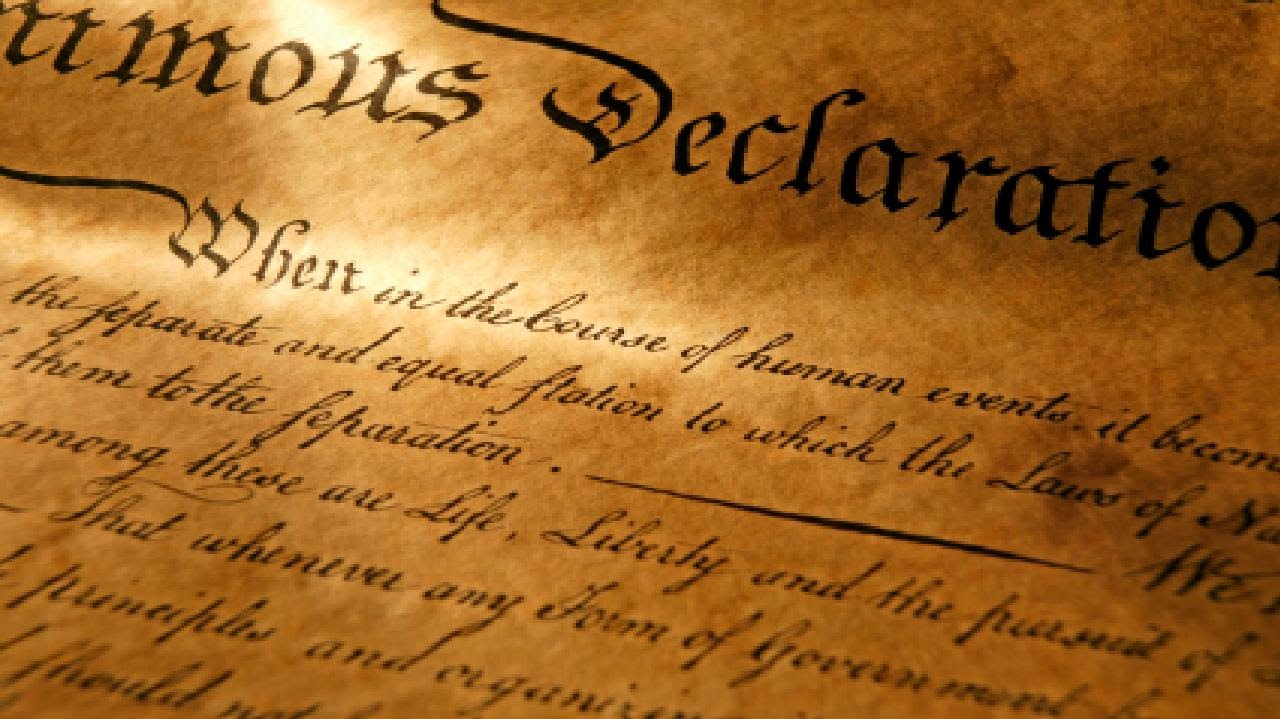 imous Declaration
When in the Course of human events, it becom
the separate and equal station to which the Laws of Na
them to the separation. — We
among these are Life, Liberty and the pursuit of
— That whenever any Form of Government
principles and organizin
should not